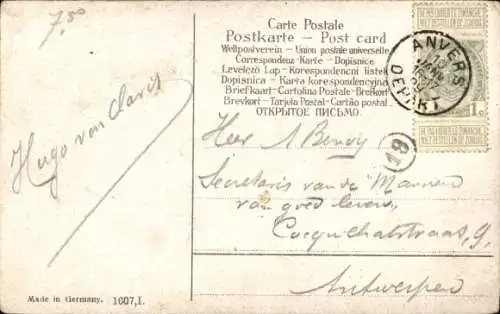 7,50
Carte Postale
Postkarte – Post card
Weltpostverein – Union postale universelle
Correspondenz-Karte – Dopisnice
Levelező Lap – Korespondencni listek
Dopisnica – Karta korespondencyjna
Briefkaart – Cartolina Postale – Brefkort
Brevkort – Tarjeta Postal – Cartão postal
ОТКРЫТОЕ ПИСЬМО
NE PAS LIVRER LE DIMANCHE
NIET BESTELLEN OP ZONDAG
ANVERS
DEPART
1c
NE PAS LIVRER LE DIMANCHE
NIET BESTELLEN OP ZONDAG
Hugo van
Heer A Benoy
19
Secretaris van de "Mannen
van goed
9,
Antwerpen
Made in Germany. 1607,I.